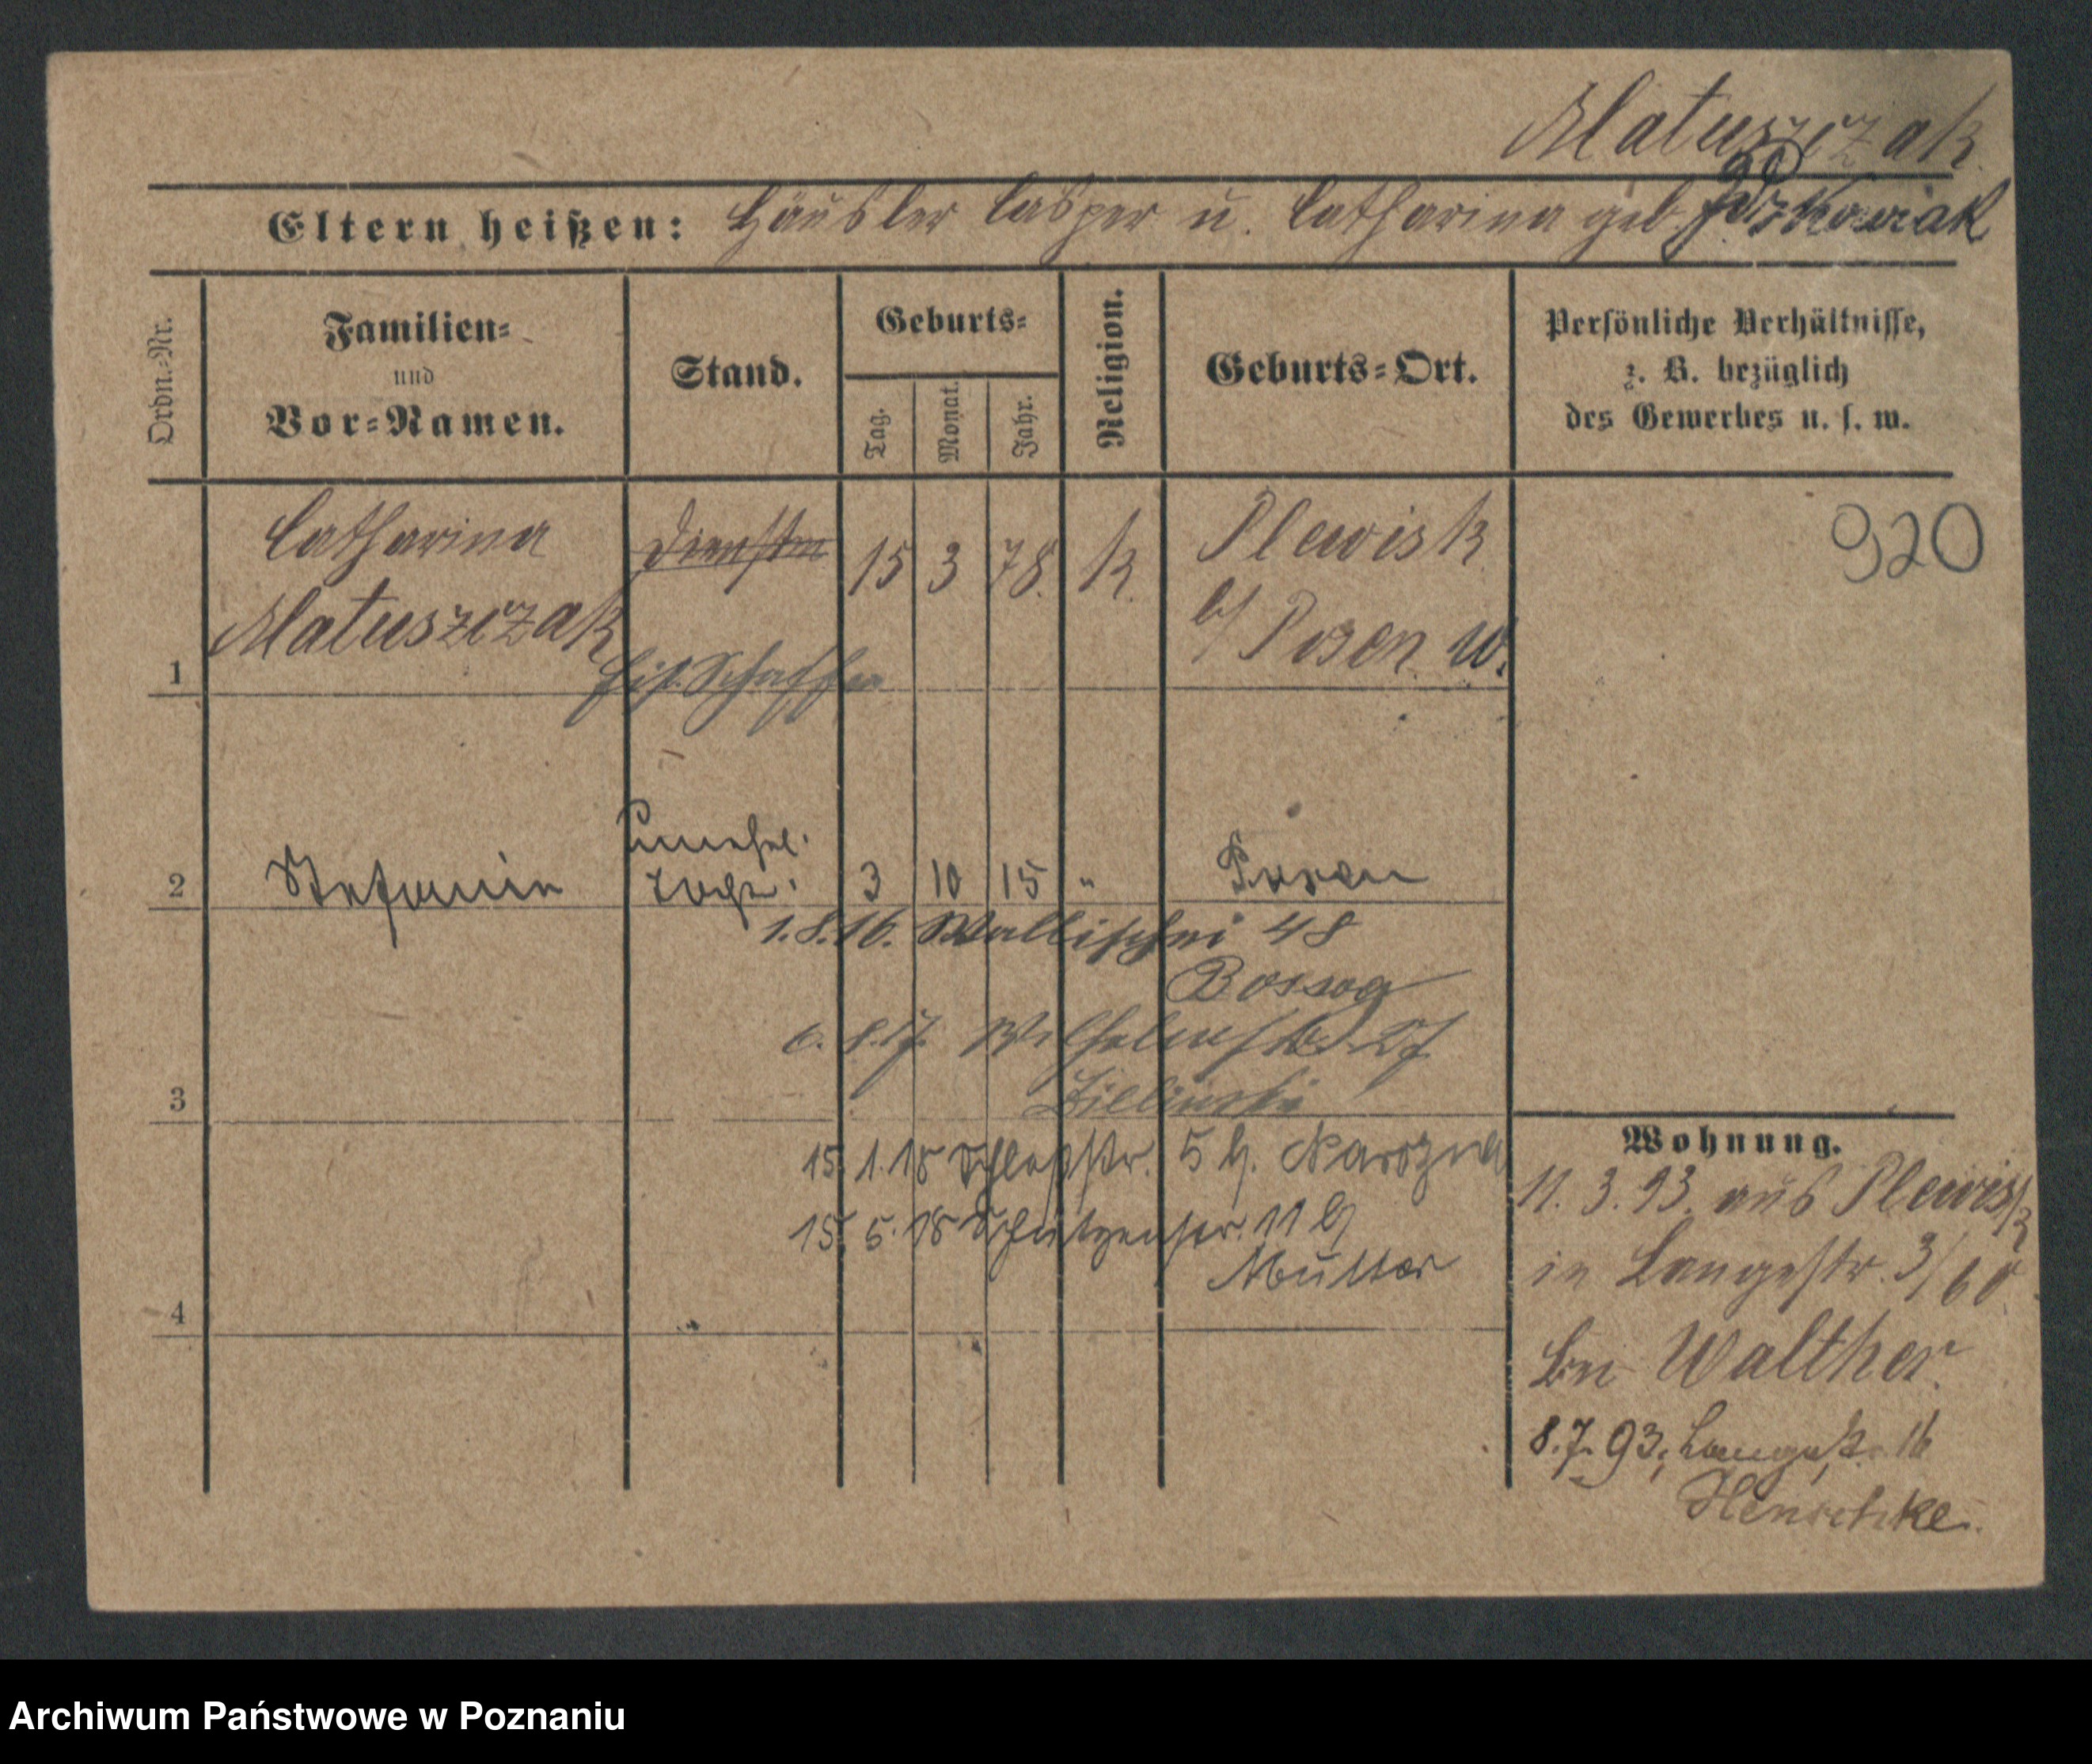 Matuszczak
Eltern heißen: Häusler Casper u. Catharina geb.
Ordn.-Nr.
Familien-
und
Vor-Namen.
Stand.
Geburts-
Tag.
Monat.
Jahr.
Religion.
Geburts-Ort.
Persönliche Verhältnisse,
z. B. bezüglich
des Gewerbes u. s. w.
920
Catharina
Matuszczak
1
Dienstm
Eis. Schaffn
15 3 78. k.
Plewisk
b/ Posen W.
2 Stefania
unehel.
Tocht.
3 10 15 " Posen
1.8.16. Wallischei 48
6. 8.17. Wilhelmstr. 27
Zielinski
3
15. 1. 18 Schloßstr. 5 b.
15. 5. 18 Schützenstr. 11 b
Mutter
4
Wohnung.
11. 3. 93. aus Plewisk
in Langestr. 3/
bei Walther.
8.7.93. Langestr. 16
Henschke.
Archiwum Państwowe w Poznaniu